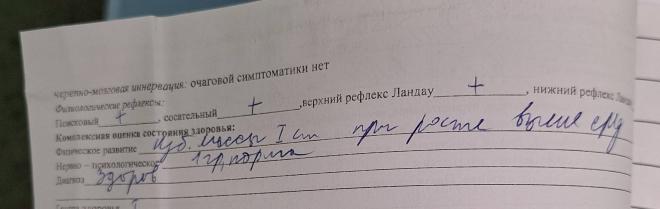 черепно-мозговая иннервация: очаговой симптоматики нет
Физиологические рефлексы:
Поисковый + , сосательный + ,верхний рефлекс Ландау + , нижний рефлекс Ландау
Комплексная оценка состояния здоровья:
Физическое развитие изб. массы I ст при росте выше сред
Нервно – психологическое 1 гр, норма
Диагноз Здоров